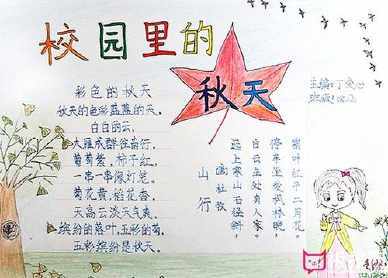 校园里的
秋天
彩色的秋天
秋天的色彩蓝蓝的天。
白白的云,
大雁成群往南行。
葡萄紫,柿子红,
一串一串像灯笼,
菊花黄,稻花香,
天高云淡天气爽,
缤纷的落叶,五彩的菊,
五彩缤纷是秋天。
山行
杜牧
远上寒山石径斜,
白云生处有人家。
停车坐爱枫林晚,
霜叶红于二月花。
主编:丁
班级: